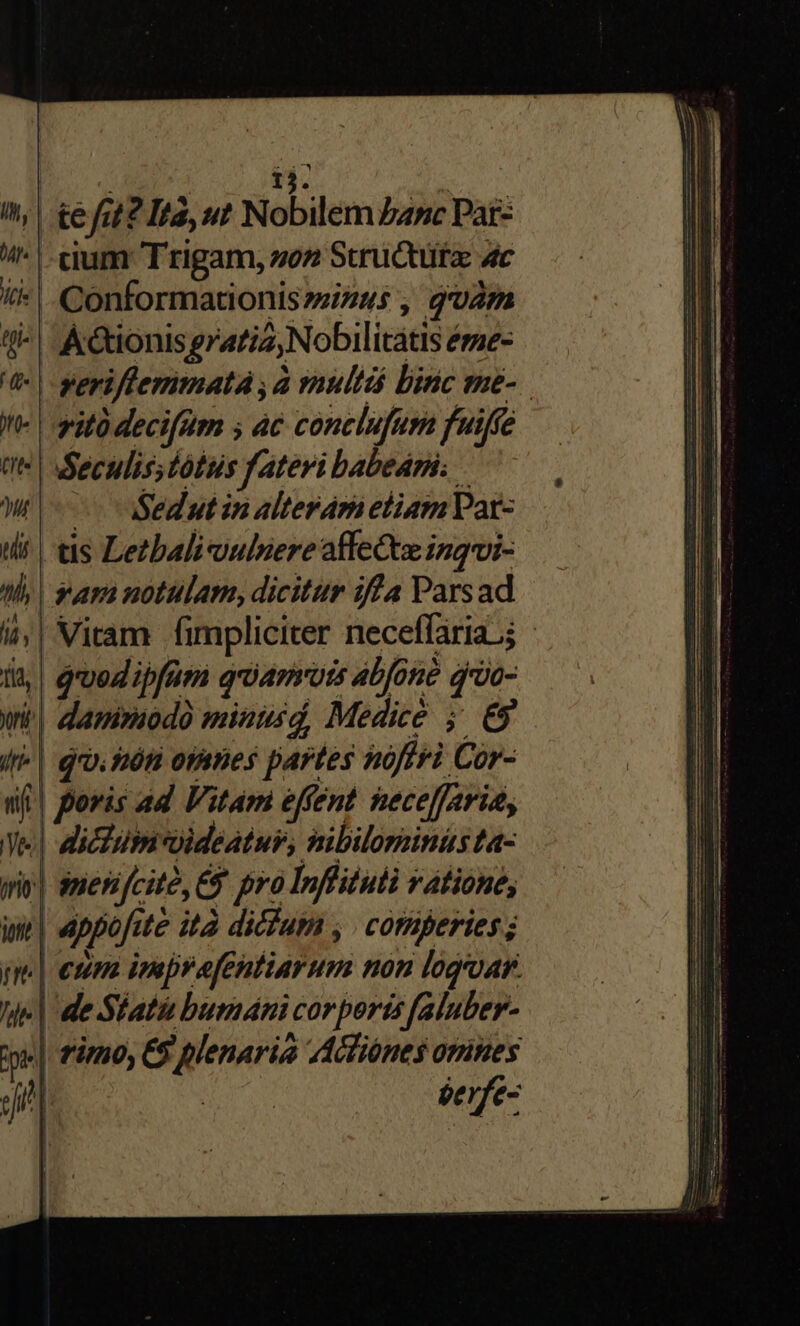 13.
te ſit? Ità, ut Nobilem hanc Par-
tium Trigam, non Structuræ ac
Conformationis minus, qvàm
Actionis gratiâ, Nobilitatis eme-
verisſemmatâ, à multis hinc me-
ritò deciſum, ac concluſum fuiſſe
Seculis, totus fateri habeam.
Sed ut in alteram etiam Par-
tis Lethali vulnere affectæ inqvi-
ram notulam, dicitur iſta Pars ad
Vitam ſimpliciter neceſſaria;
qvod ipſum qvamvis abſonè qvo-
dammodò minusq́, Medicè; &
qv. non omnes partes noſtri Cor-
poris ad Vitam eſſent neceſſariæ,
dictum videatur, nihilominus ta-
men ſcitè, & pro Inſtituti ratione,
appoſitè ità dictum, comperies;
cùm impræſentiarum non loqvar
de Statu humani corporis ſaluber-
rimo, & plenariâ Actiones omnes
perfe-